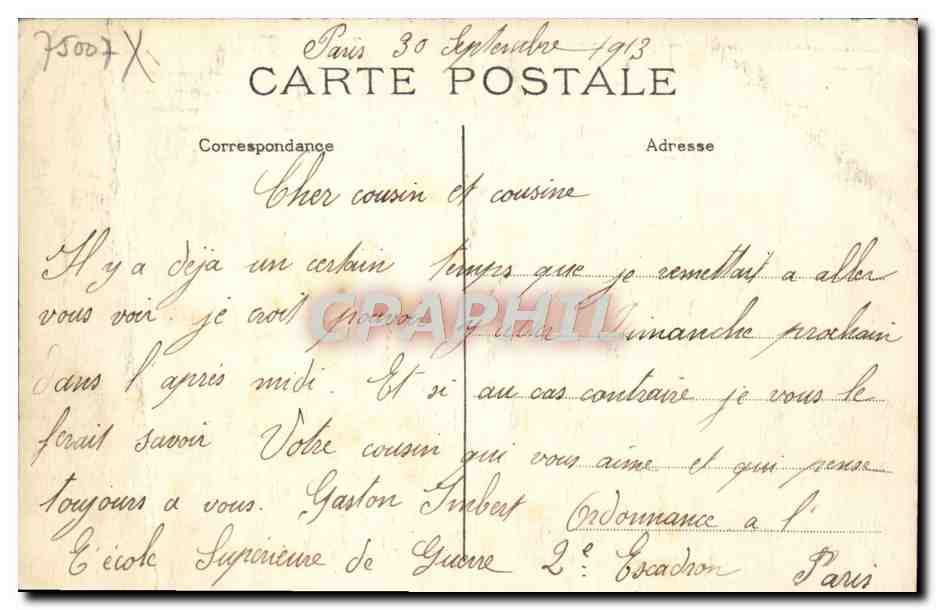 75007 X
Paris 30 Septembre 1913
CARTE POSTALE
Correspondance
Adresse
Cher cousin et cousine
Il y a déja un certain temps que je remettait a aller
vous voir. je croit pouvoir y aller Dimanche prochain
dans l'après midi. Et si au cas contraire je vous le
ferait savoir Votre cousin qui vous aime et qui pense
toujours a vous. Gaston Imbert Ordonnance a l'
E'école Supérieure de Guerre 2e Escadron Paris
CPAPHIL